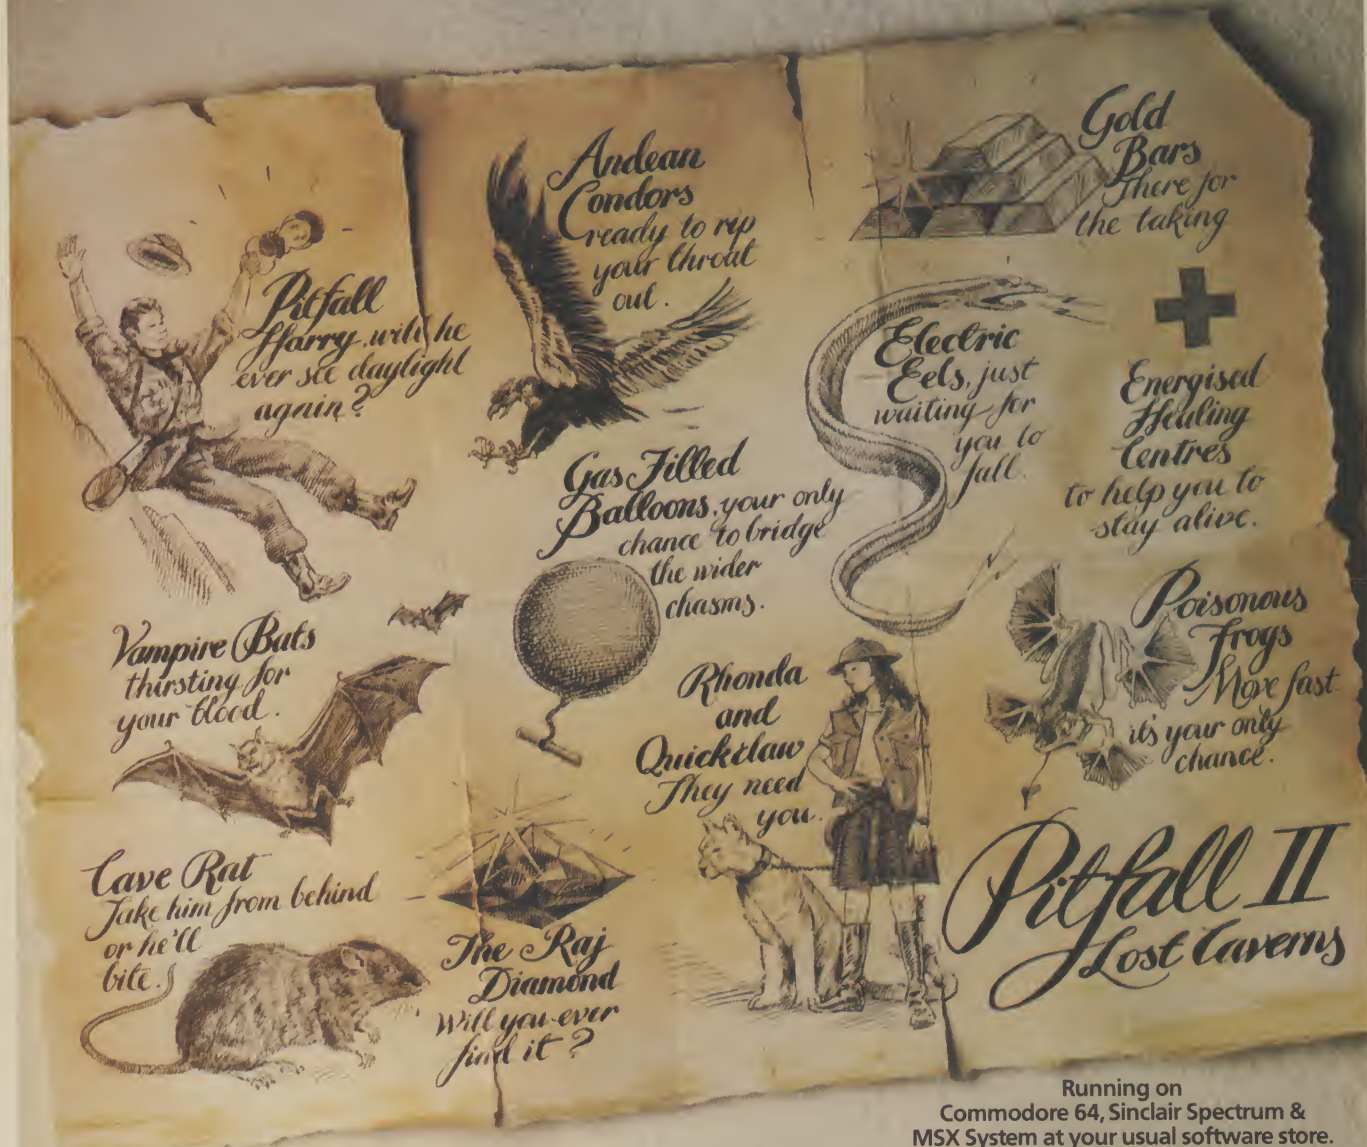 Pitfall
Harry, will he
ever see daylight
again?
Andean
Condors
ready to rip
your throat
out.
Gold
Bars
There for
the taking
Electric
Eels, just
waiting for
you to
fall.
Energised
Healing
Centres
to help you to
stay alive.
Gas Filled
Balloons, your only
chance to bridge
the wider
chasms.
Vampire Bats
thirsting for
your blood.
Rhonda
and
Quickclaw
They need
you.
Poisonous
Frogs
Move fast
it's your only
chance.
Cave Rat
Take him from behind
or he'll
bite.
The Raj
Diamond
Will you ever
find it?
Pitfall II
Lost Caverns
Running on
Commodore 64, Sinclair Spectrum &
MSX System at your usual software store.